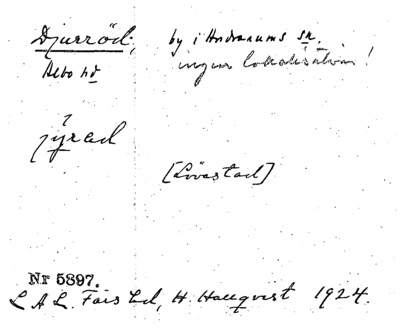 Djurröd, by i Andrarums sn.
Albo hd ingen lokalisation!
jýrad
[Lövestad]
Nr 5897.
L A L. Färs hd, H. Hallqvist 1924.